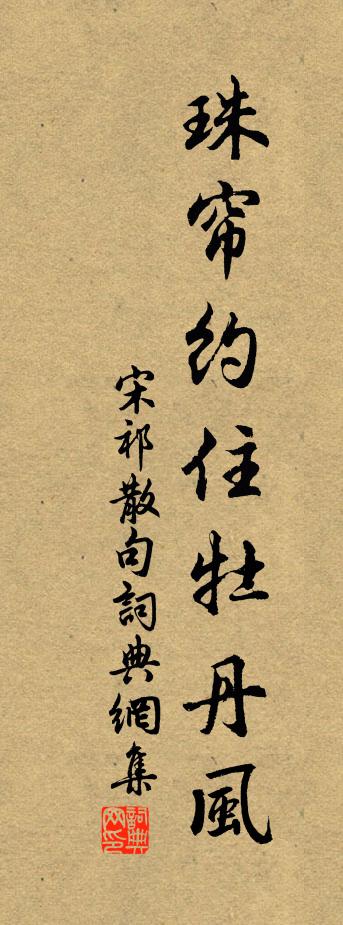 珠帘约住牡丹風
宋祁散句詞典網集
詞典网印